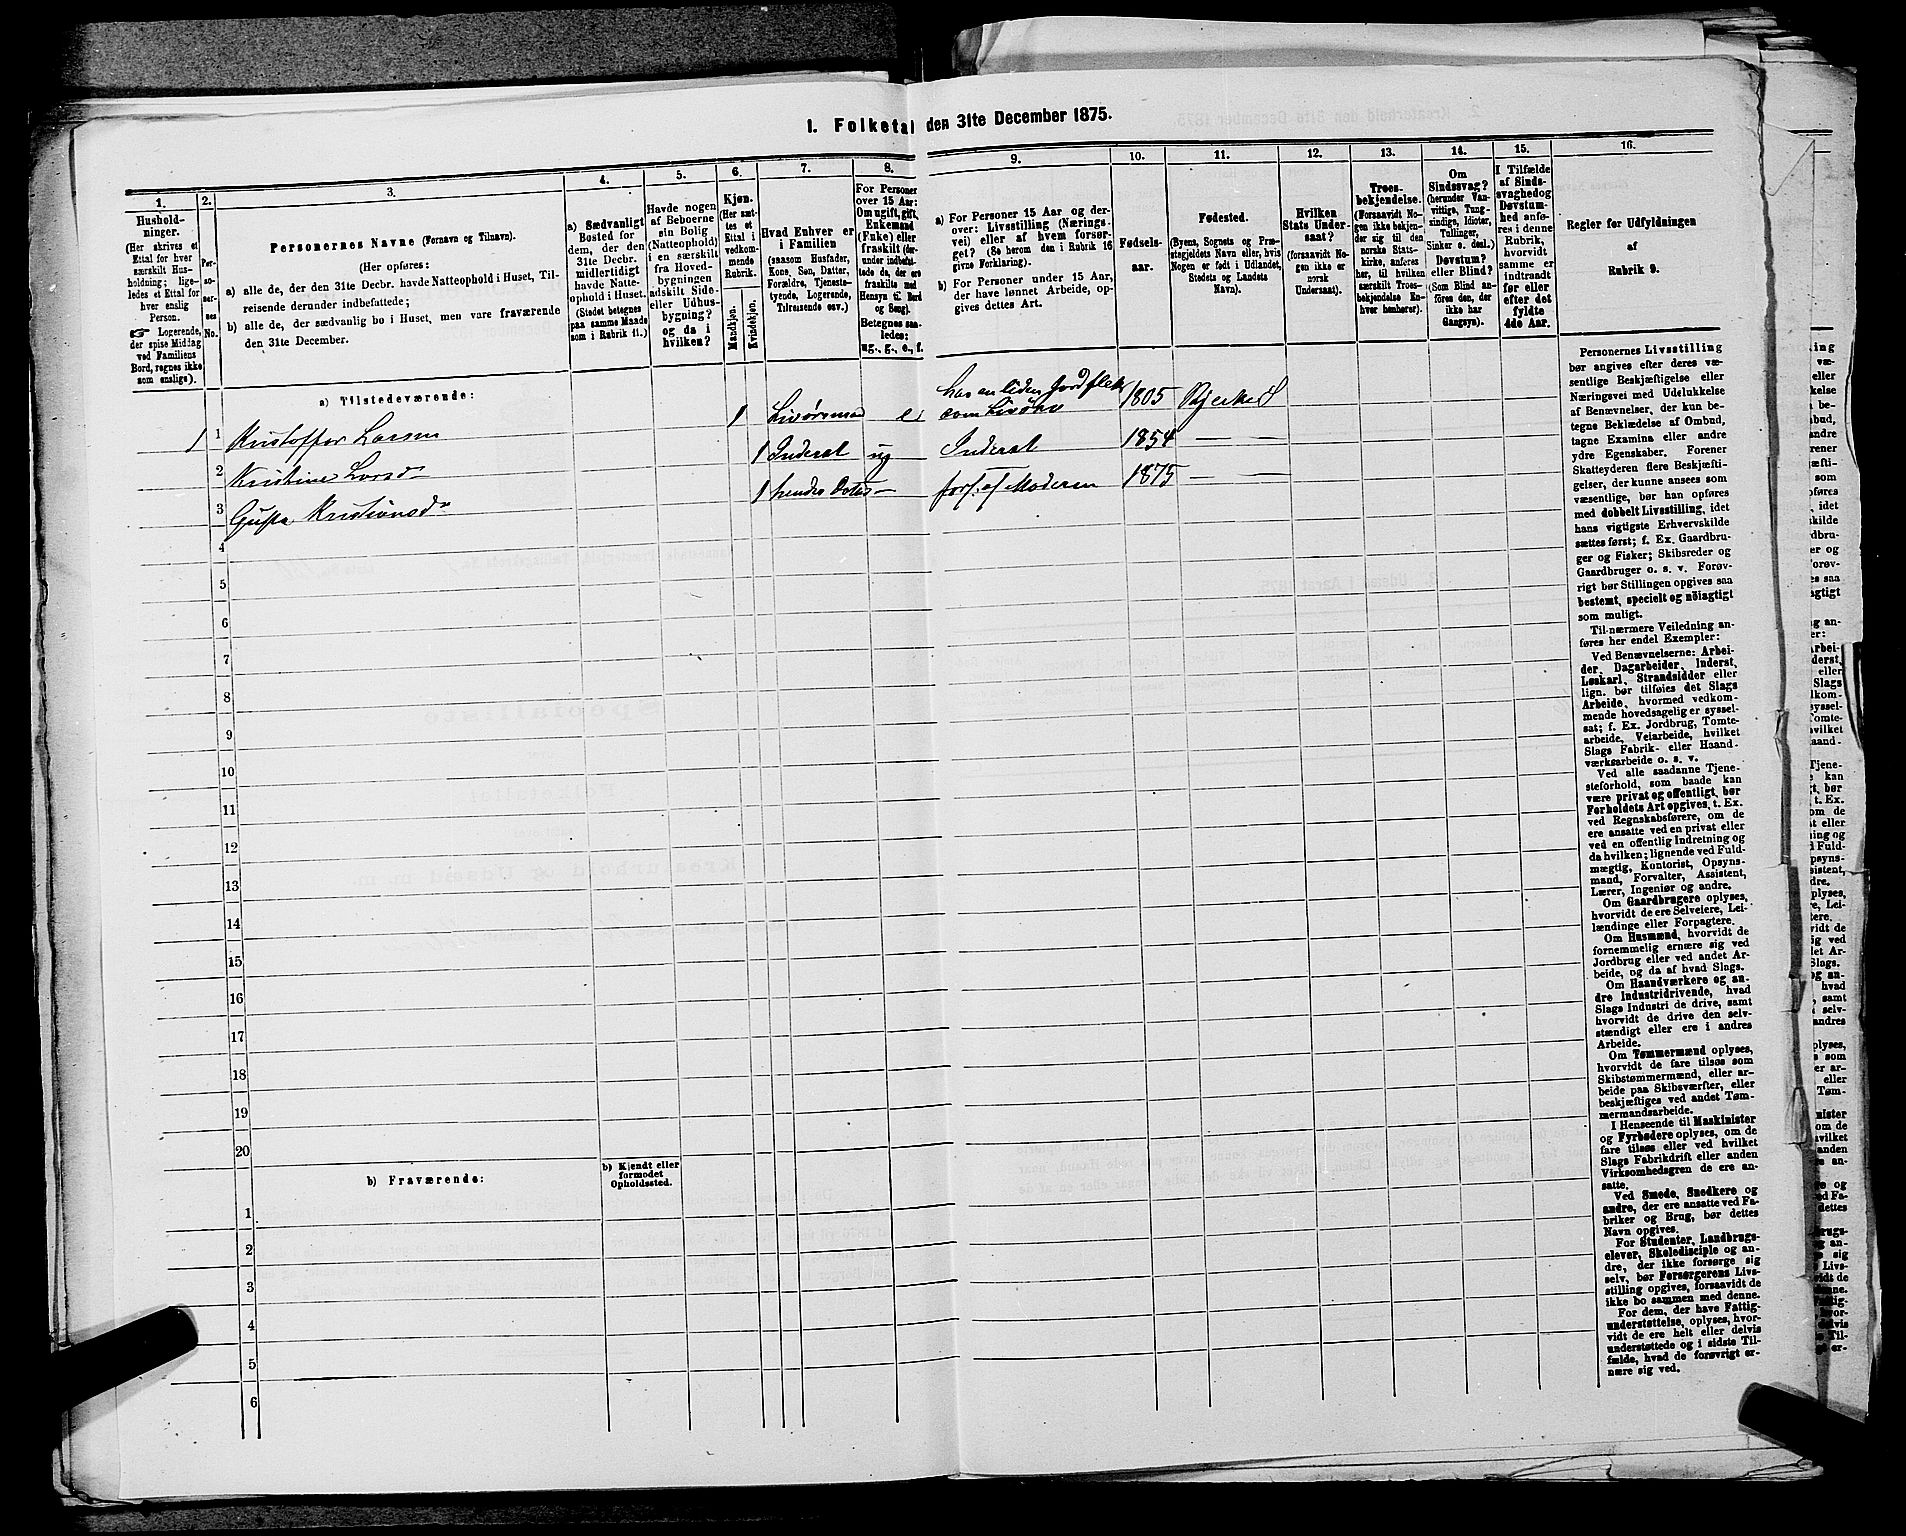 1. Folketal den 31te December 1875.
1.
Hushold-
ninger.
(Her skrives et
Ettal for hver
særskilt Hus-
holdning; lige-
ledes et Ettal for
hver enslig
Person.
☞ Logerende,
der spise Middag
ved Familiens
Bord, regnes ikke
som enslige).
2.
Per-
so-
ner-
nes
No.
3.
Personernes Navne (Fornavn og Tilnavn).
(Her opføres:
a) alle de, der den 31te Decbr. havde Natteophold i Huset, Til-
reisende derunder indbefattede;
b) alle de, der sædvanlig bo i Huset, men vare fraværende
den 31te December.
4.
a) Sædvanligt
Bosted for
dem, der den
31te Decbr.
midlertidigt
havde Natte-
ophold i Huset.
(Stedet betegnes
paa samme Maade
som i Rubrik 11.)
5.
Havde nogen
af Beboerne
sin Bolig
(Natteophold)
i en særskilt
fra Hoved-
bygningen
adskilt Side-
eller Udhus-
bygning?
og da i
hvilken?
6.
Kjøn.
(Her sæt-
tes et
Ettal i
vedkom-
mende
Rubrik.
Mandkjøn.
Kvindekjøn.
7.
Hvad Enhver er
i Familien
(saasom Husfader,
Kone, Søn, Datter,
Forældre, Tjeneste-
tyende, Logerende,
Tilreisende osv.)
8.
For Personer
over 15 Aar:
Om ugift, gift,
Enkemand
(Enke) eller
fraskilt (der-
under indbefat-
tede de, der ere
fraskilte med
Hensyn til Bord
og Seng).
Betegnes saa-
ledes:
ug., g., e., f.
9.
a) For Personer 15 Aar og der-
over: Livsstilling (Nærings-
vei) eller af hvem forsør-
get? (Se herom den i Rubrik 16
givne Forklaring).
b) For Personer under 15 Aar,
der have lønnet Arbeide, op-
gives dettes Art.
10.
Fødsels-
aar.
11.
Fødested.
(Byens, Sognets og Præ-
stegjeldets Navn, eller, hvis
Nogen er født i Udlandet,
Stedets og Landets
Navn).
12.
Hvilken
Stats Under-
saat?
(forsaavidt No-
gen ikke er
norsk
Undersaat).
13.
Troes-
bekjendelse.
(Forsaavidt No-
gen ikke bekjen-
der sig til den
norske Stats-
kirke, anføres
her, til hvilken
særskilt Troes-
bekjendelse En-
hver henhører).
14.
Om
Sindssvag?
(herunder Van-
vittige, Tung-
sindige, Idioter,
Tullinger,
Sinker o. desl.)
Døvstum?
eller Blind?
(Som Blind an-
føres den, der
ikke har
Gangsyn).
15.
I Tilfælde
af Sinds-
svaghed og
Døvstum-
hed anfø-
res i denne
Rubrik,
hvorvidt
samme er
indtraadt
før eller
efter det
fyldte
4de Aar.
16.
Regler for Udfyldningen
af
Rubrik 9.
a) Tilstedeværende:
1 1 Kristoffer Larsen 1 e har en liden Jordflek 1805
2 Kristine Larsd 1 Inderst ug Inderst 1854 —
3 Gusta Kristiansd 1 hendes Datter — fors. af Moderen 1875 —
4
5
6
7
8
9
10
11
12
13
14
15
16
17
18
19
20
b) Fraværende:
b) Kjendt eller
formodet
Opholdssted.
1
2
3
4
5
6
Personernes Livsstilling
bør angives efter deres væ-
sentlige Beskjæftigelse eller
Næringsvei med Udelukkelse
af Benævnelser, der kun be-
tegne Beklædelse af Ombud,
tagne Examina eller andre
ydre Egenskaber. Forener
Skatteyderen flere Beskjæfti-
gelser, der kunne ansees som
væsentlige, bør han opføres
med dobbelt Livsstilling, idet
hans vigtigste Erhvervskilde
sættes først; f. Ex. Gaardbru-
ger og Fisker; Skibsreder og
Gaardbruger o. s. v. Forøv-
rigt bør Stillingen opgives saa
bestemt, specielt og nöiagtigt
som muligt.
Til nærmere Veiledning an-
føres her endel Exempler:
Ved Benævnelserne: Arbei-
der, Dagarbeider, Inderst,
Løskarl, Strandsidder eller
lign. bør tilføies det Slags
Arbeide, hvormed vedkom-
mende hovedsagelig er syssel-
sat; f. Ex. Jordbrug, Tomte-
arbeide, Veiarbeide, hvilket
Slags Fabrik- eller Haand-
værksarbeide o. s. v.
Ved alle saadanne Tjene-
steforhold, som baade kan
være privat og offentligt, bør
Forholdets Art opgives, t. Ex.
ved Regnskabsførere, om de
ere ansatte ved en privat eller
ved en offentlig Indretning og
da hvilken; lignende ved Fuld-
mægtig, Kontorist, Opsyns-
mand, Forvalter, Assistent,
Lærer, Ingeniør og andre.
Om Gaardbrugere oplyses,
hvorvidt de ere Selveiere, Lei-
lændinge eller Forpagtere.
Om Husmænd, hvorvidt de
fornemmelig ernære sig ved
Jordbrug eller ved andet Ar-
beide, og da af hvad Slags.
Om Haandværkere og an-
dre Industridrivende, hvad
Slags Industri de drive, samt
hvorvidt de drive den selv-
stændigt eller ere i andres
Arbeide.
Om Tømmermænd oplyses,
hvorvidt de fare tilsøs som
Skibstømmermænd, eller ar-
beide paa Skibsværfter, eller
beskjæftiges ved andet Tøm-
mermandsarbeide.
I Henseende til Maskinister
og Fyrbødere oplyses, om de
fare tilsøs eller ved hvilket
Slags Fabrikdrift eller anden
Virksomhedsgren de ere an-
satte.
Ved Smede, Snedkere og
andre, der ere ansatte ved Fa-
briker og Brug, bør dettes
Navn opgives.
For Studenter, Landbrugs-
elever, Skoledisciple og an-
dre, der ikke forsørge sig
selv, bør Forsørgerens Livs-
stilling opgives, forsaavidt de
ikke bo sammen med denne.
For dem, der have Fattig-
understøttelse, oplyses, hvor-
vidt de ere helt eller delvis
understøttede og i sidste Til-
fælde, hvad de forøvrigt er-
nære sig ved.